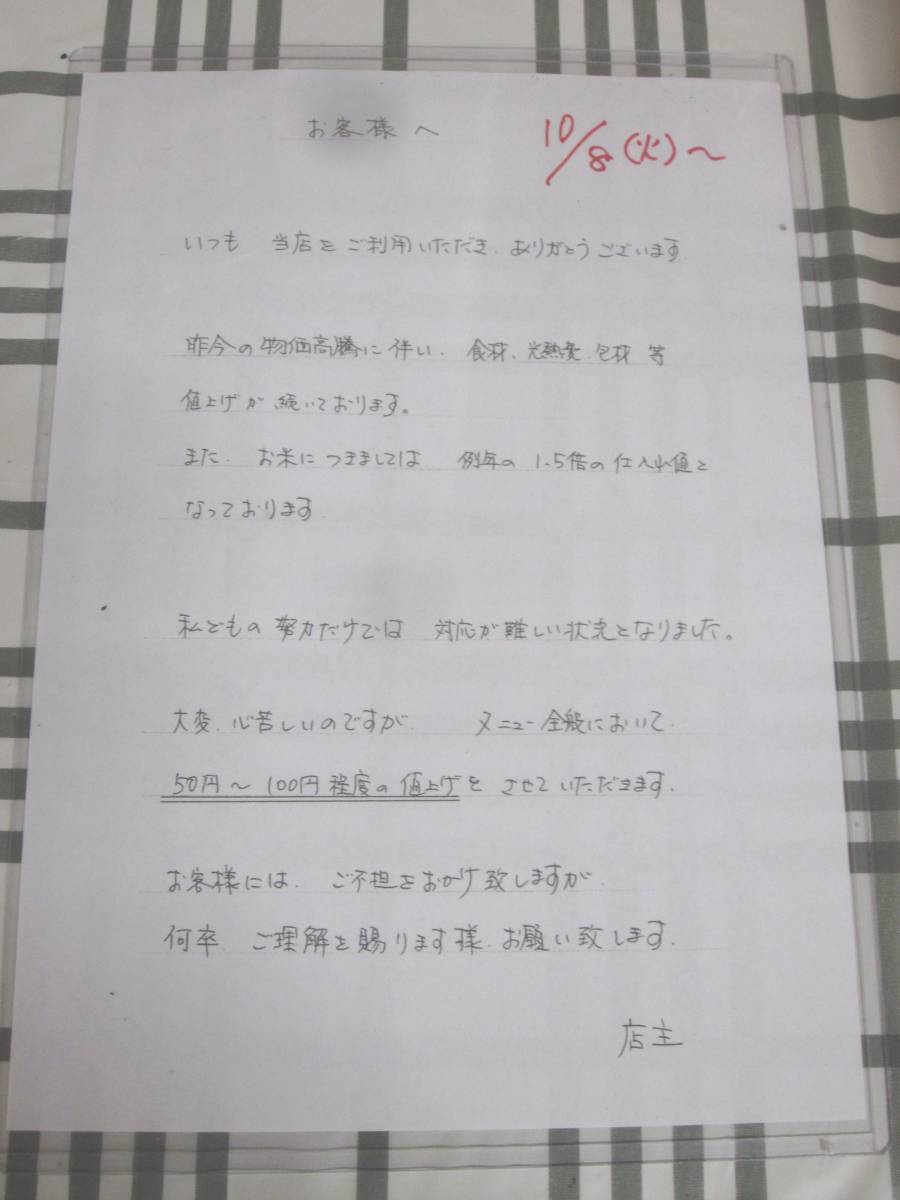 お客様へ
10/8(火)~
いつも 当店を ご利用いただき、ありがとうございます
昨今の物価高騰に伴い、食材、光熱費、包材 等
値上げが 続いております。
また、お米につきましては 例年の 1.5倍の仕入れ値と
なっております
私どもの 努力だけでは 対応が難しい状況となりました。
大変、心苦しいのですが、 メニュー全般において、
50円~100円程度の値上げを させていただきます。
お客様には、ご不担をおかけ致しますが、
何卒、ご理解を賜ります様、お願い致します。
店主